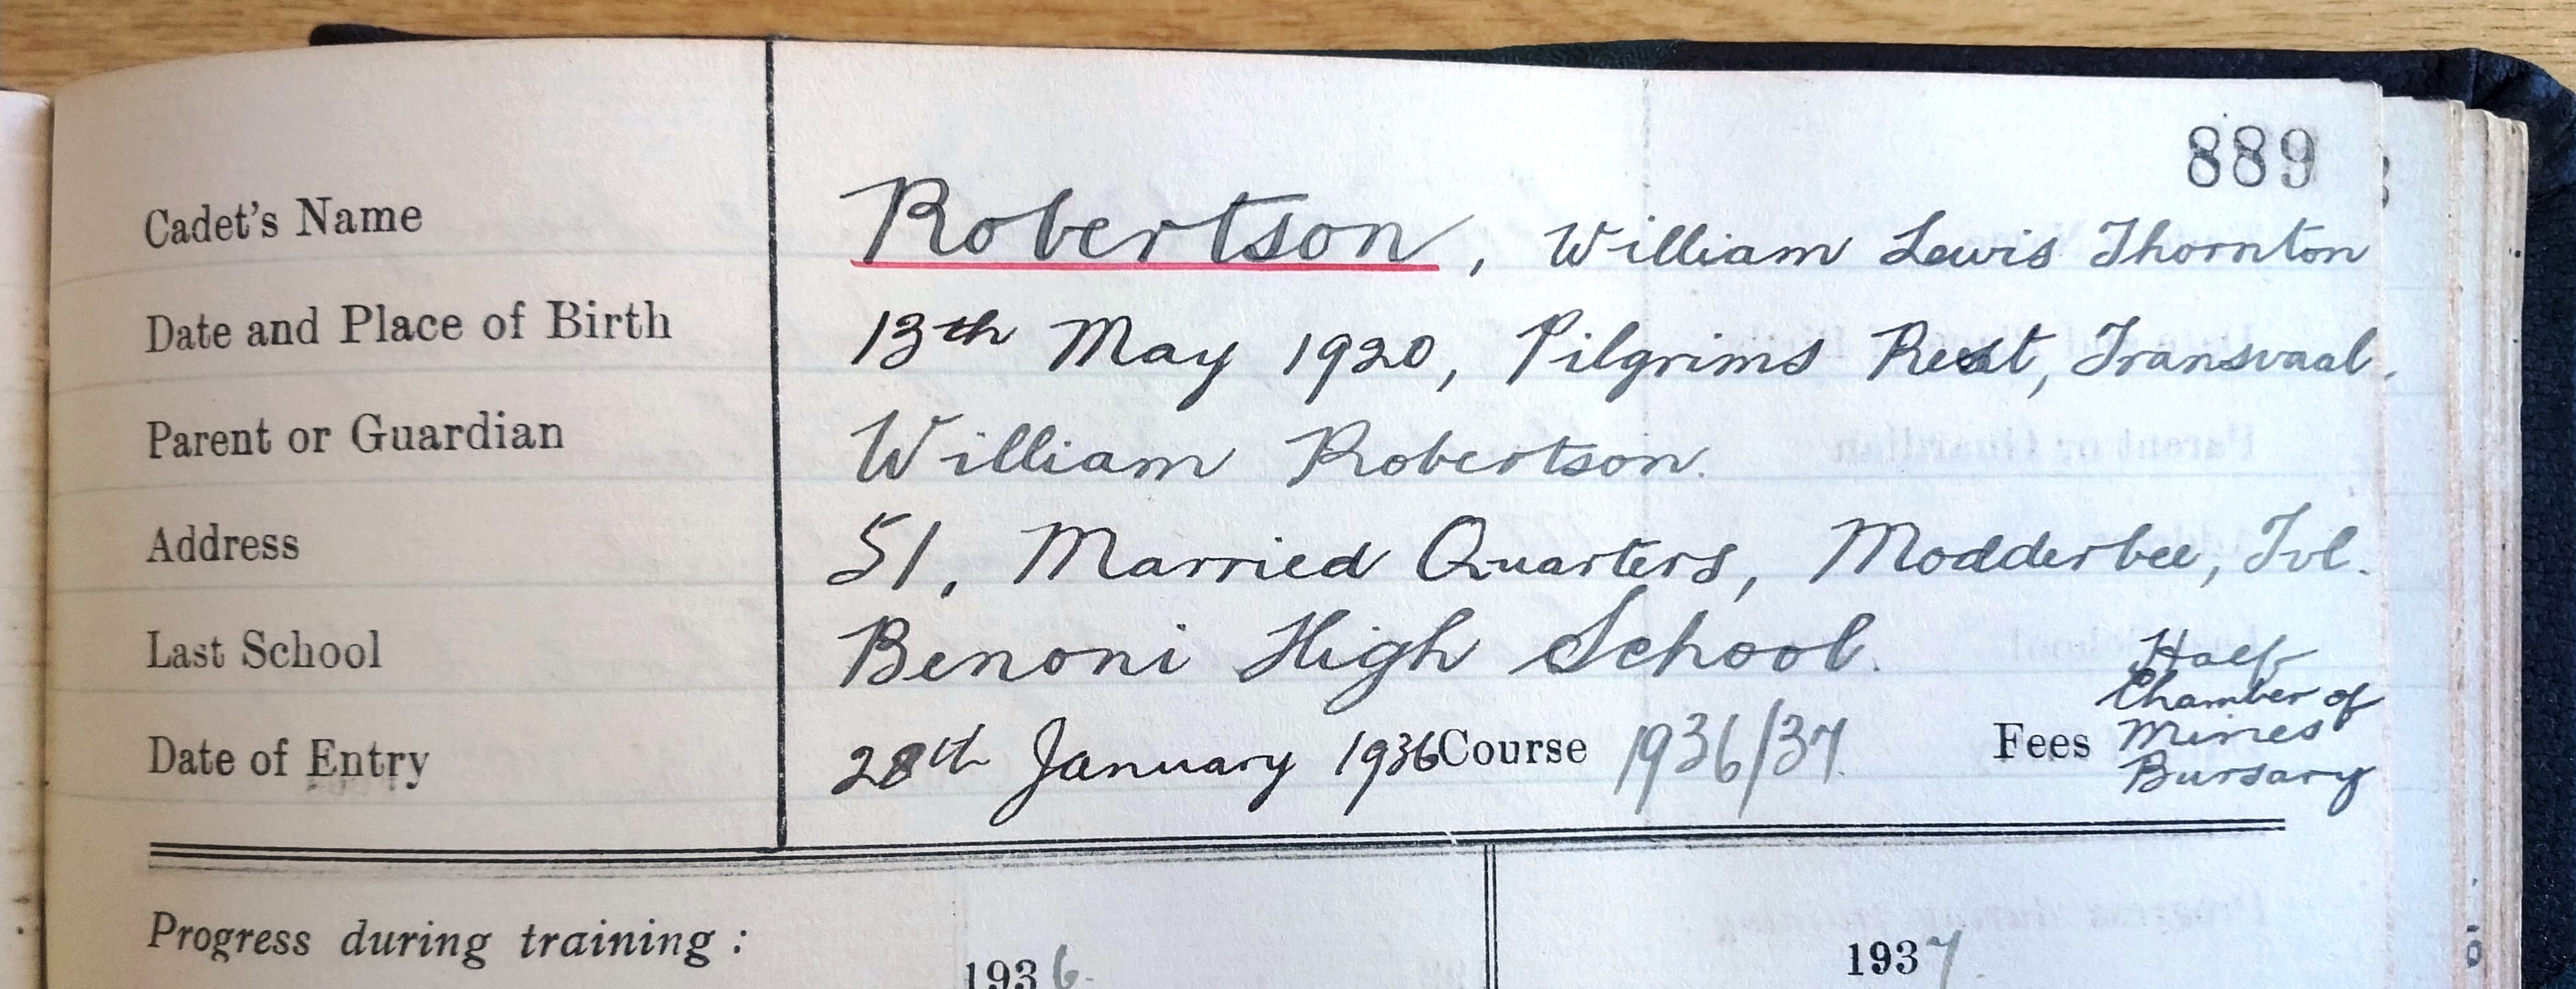 889
Cadet's Name Robertson, William Lewis Thornton
Date and Place of Birth 13th May 1920, Pilgrims Rest, Transvaal.
Parent or Guardian William Robertson.
Address 51, Married Quarters, Modderbee, Tvl.
Last School Benoni High School.
Date of Entry 28th January 1936 Course 1936/37. Fees Half
Chamber of
Mines
Bursary
Progress during training:
1936. 1937.